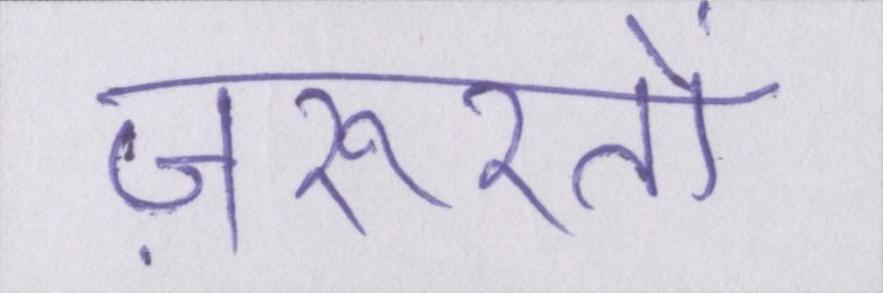 ज़रूरतों